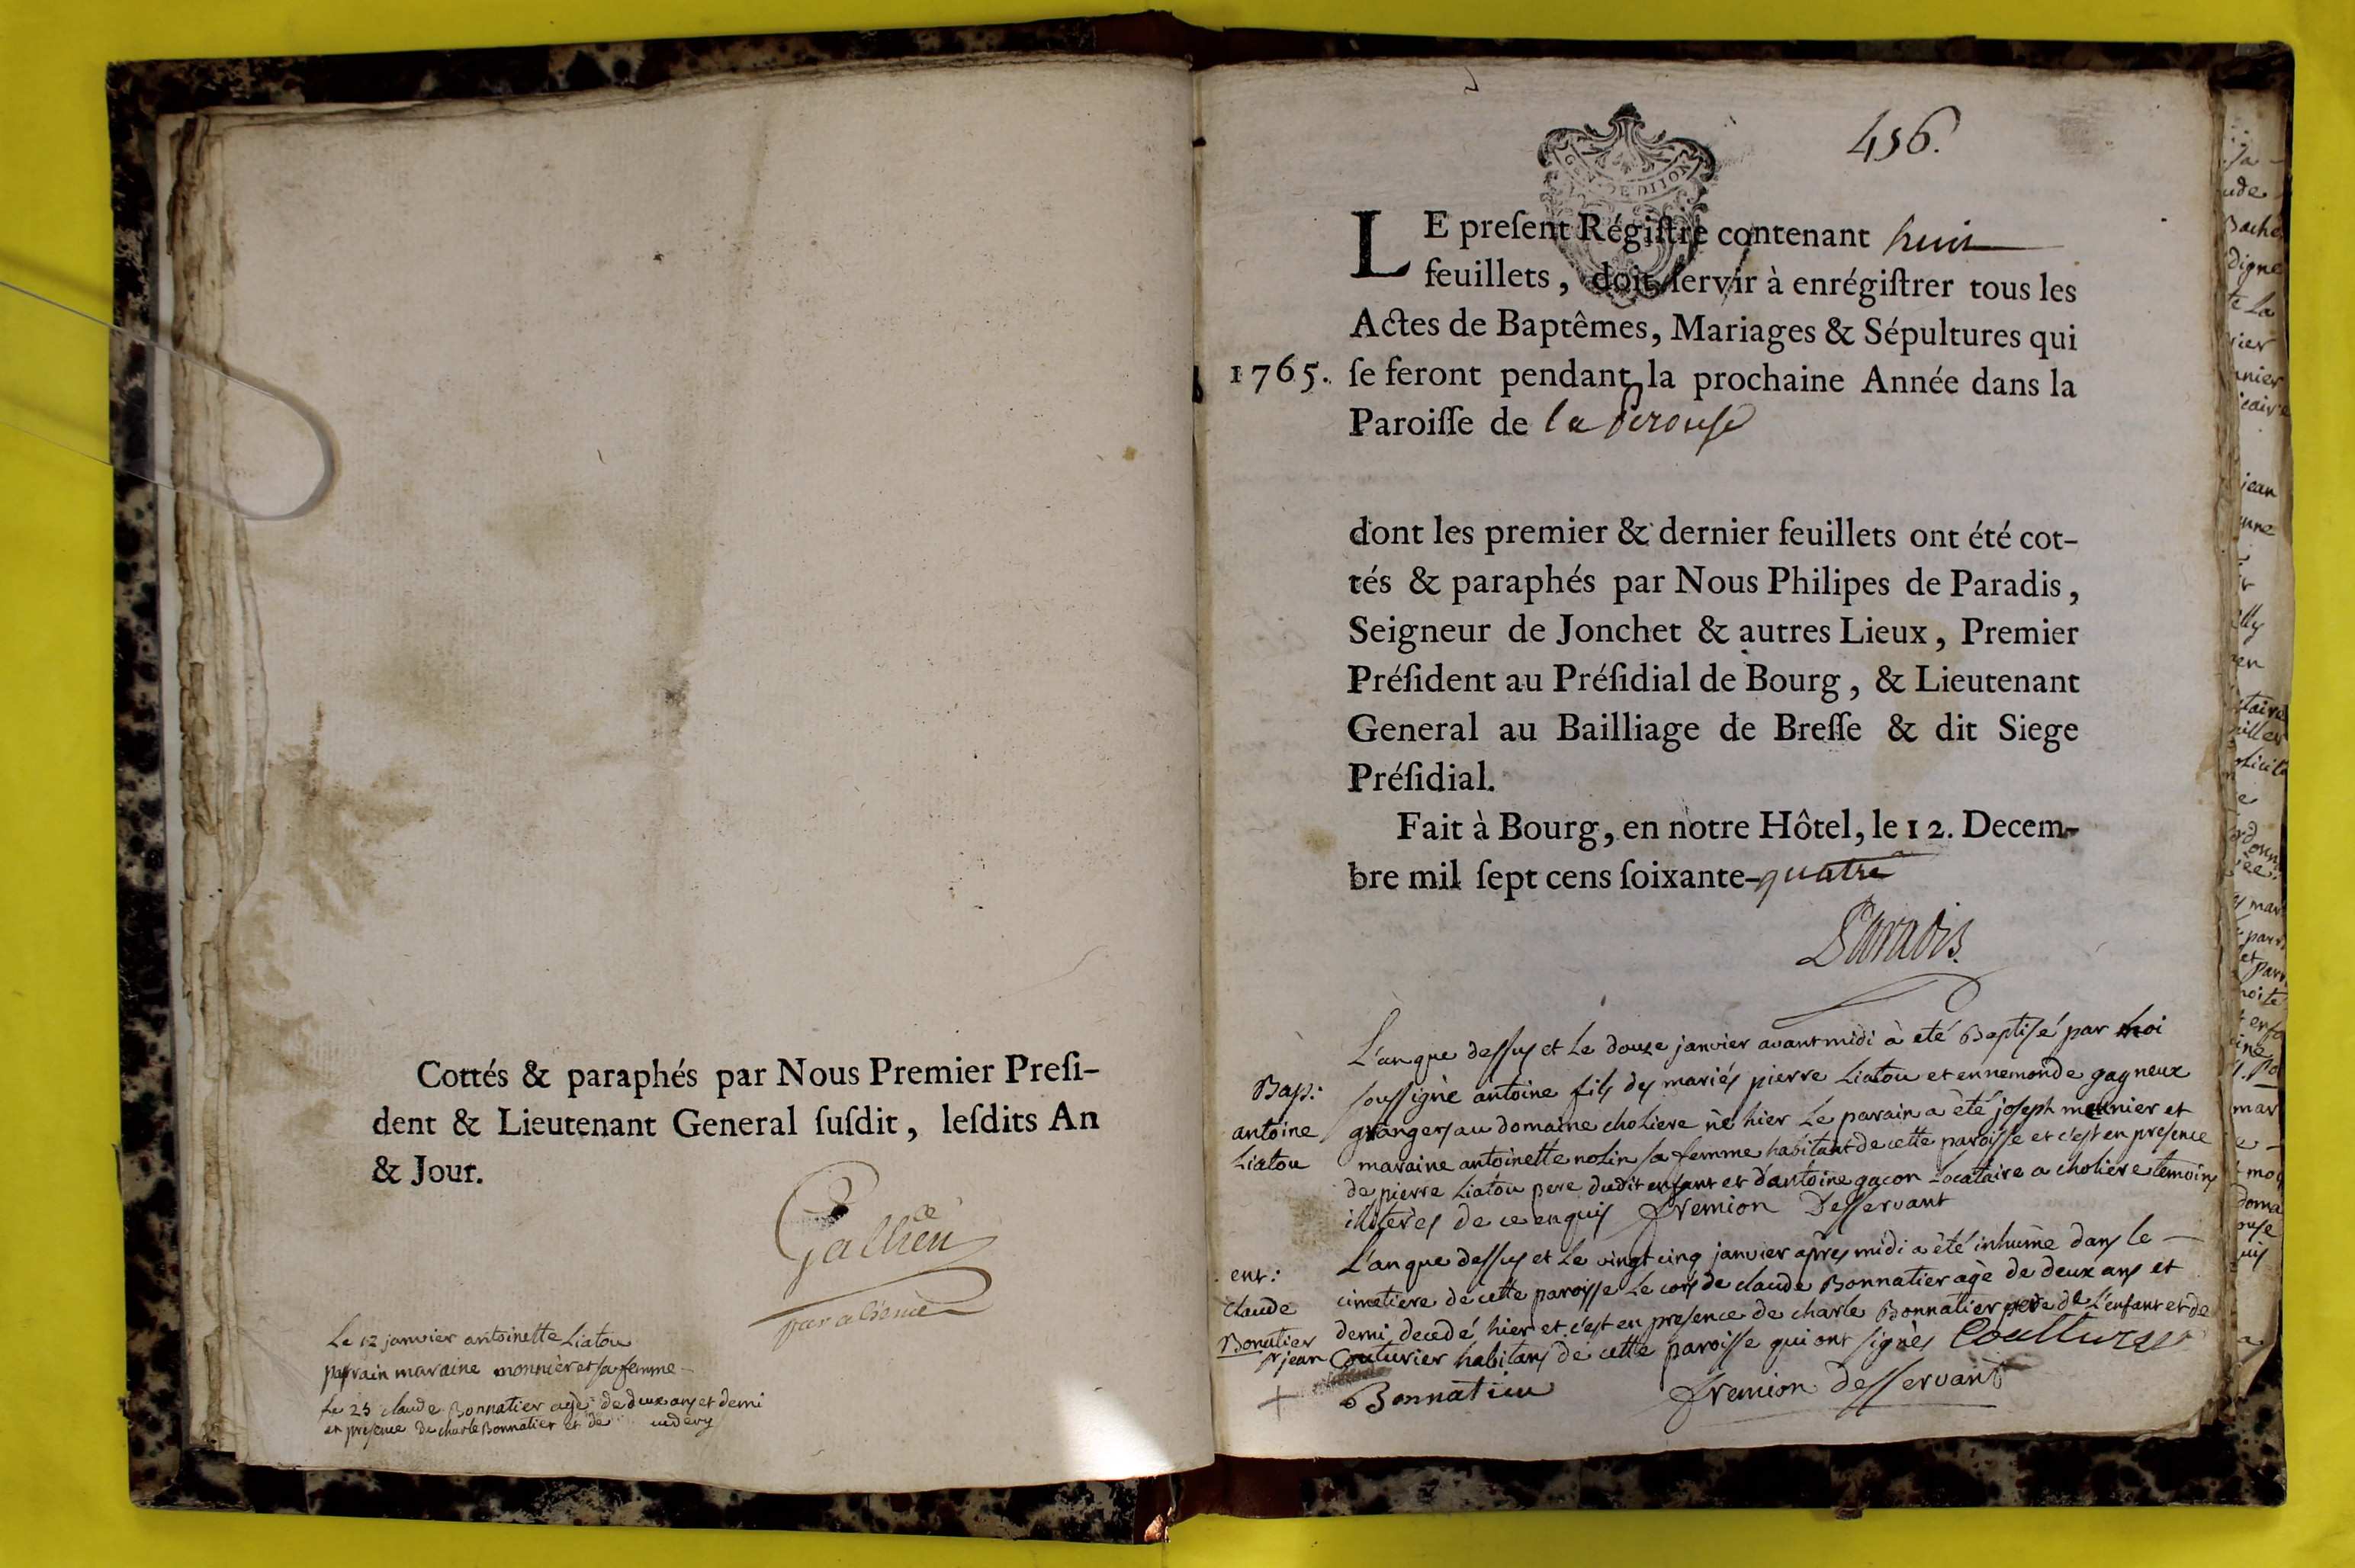 Cottés & paraphés par Nous Premier Presi-
dent & Lieutenant General susdit, lesdits An
& Jour.
Gallien
par absence
Le 12 janvier antoinette Liatou
parrain maraine monnier et sa femme
Le 25 claude Bonnatier agé de deux ans et demi
en presence de charle Bonnatier et de
456.
GEN. DE DIJON
LE present Régistre contenant huit
feuillets, doit servir à enrégistrer tous les
Actes de Baptêmes, Mariages & Sépultures qui
1765. se feront pendant la prochaine Année dans la
Paroisse de la perouse
dont les premier & dernier feuillets ont été cot-
tés & paraphés par Nous Philipes de Paradis,
Seigneur de Jonchet & autres Lieux, Premier
Président au Présidial de Bourg, & Lieutenant
General au Bailliage de Bresse & dit Siege
Présidial.
Fait à Bourg, en notre Hôtel, le 12. Decem-
bre mil sept cens soixante-quatre
Paradis.
Bap:
antoine
Liatou
L'an que dessus et Le douze janvier avant midi à eté Baptisé par moi
soussignè antoine fils des mariés pierre Liatou et ennemonde gagneux
grangers au domaine choliere nè hier Le parain a èté joseph meunier et
maraine antoinette nolin sa femme habitant de cette paroisse et c'est en presence
de pierre Liatou pere dudit enfant et d'antoine gacon Locataire a choliere temoins
iliterès de ce enquis fremion Desservant
ent:
claude
Bonatier
L'an que dessus et Le vingt cinq janvier après midi a èté inhumè dans le
cimetiere de cette paroisse Le cors de claude Bonnatier agè de deux ans et
demi decedé hier et c'est en presence de charle Bonnatier pere de L'enfant et de
sr jean Couturier habitans de cette paroisse qui ont signès Coutturier
Bonnatier fremion desservant